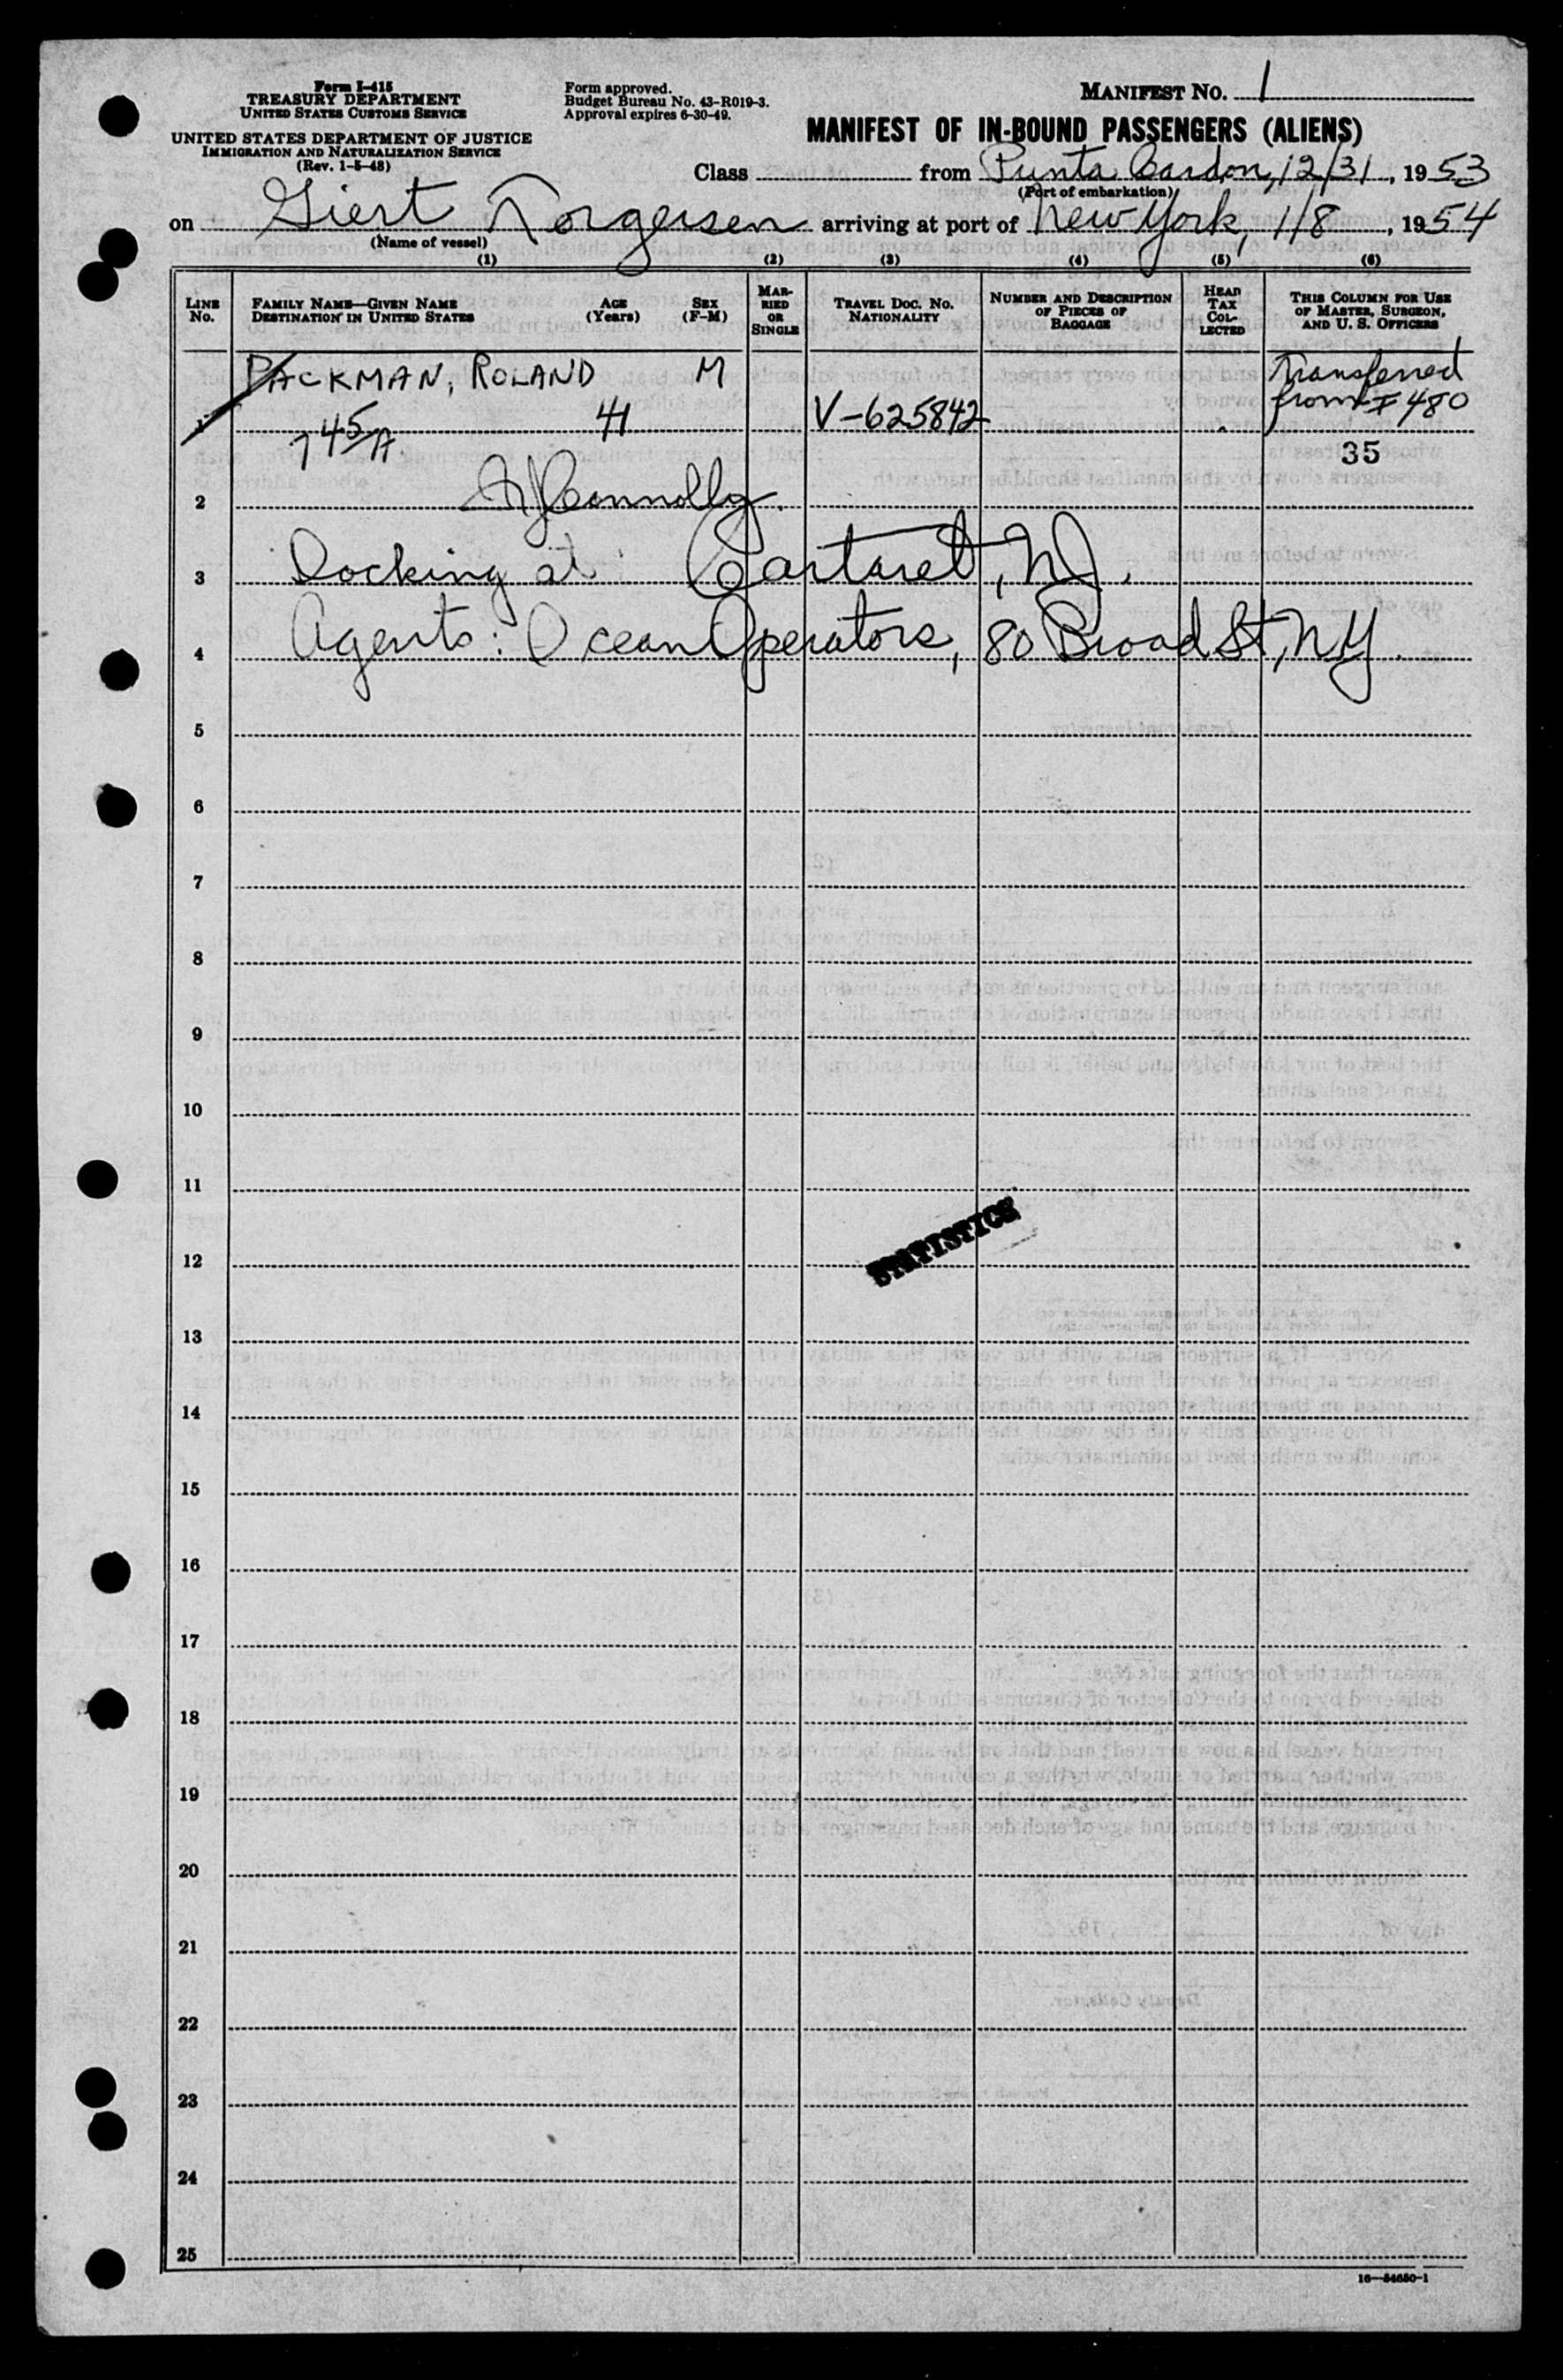 Form I-415
TREASURY DEPARTMENT
UNITED STATES CUSTOMS SERVICE
UNITED STATES DEPARTMENT OF JUSTICE
IMMIGRATION AND NATURALIZATION SERVICE
(Rev. 1-5-48)
Form approved.
Budget Bureau No. 43-R019-3.
Approval expires 6-30-49.
MANIFEST NO. 1
MANIFEST OF IN-BOUND PASSENGERS (ALIENS)
Class from Punta Cardon, 12/31, 1953
(Port of embarkation)
on Giert Torgersen arriving at port of New York, 1/8, 1954
(Name of vessel)
(1) (2) (3) (4) (5) (6)
LINE No.
FAMILY NAME—GIVEN NAME
DESTINATION IN UNITED STATES
AGE (Years)
SEX (F-M)
MARRIED OR SINGLE
TRAVEL DOC. NO.
NATIONALITY
NUMBER AND DESCRIPTION
OF PIECES OF
BAGGAGE
HEAD TAX COLLECTED
THIS COLUMN FOR USE
OF MASTER, SURGEON,
AND U. S. OFFICERS
PACKMAN, ROLAND M Transferred
41 V-625842 from I 480
745/A
35
2 Connolly
3 Docking at Cartaret, NJ.
4 Agents: Ocean Operators, 80 Broad St, NY.
5
6
7
8
9
10
11
STATISTICS
12
13
14
15
16
17
18
19
20
21
22
23
24
25
16—54650-1